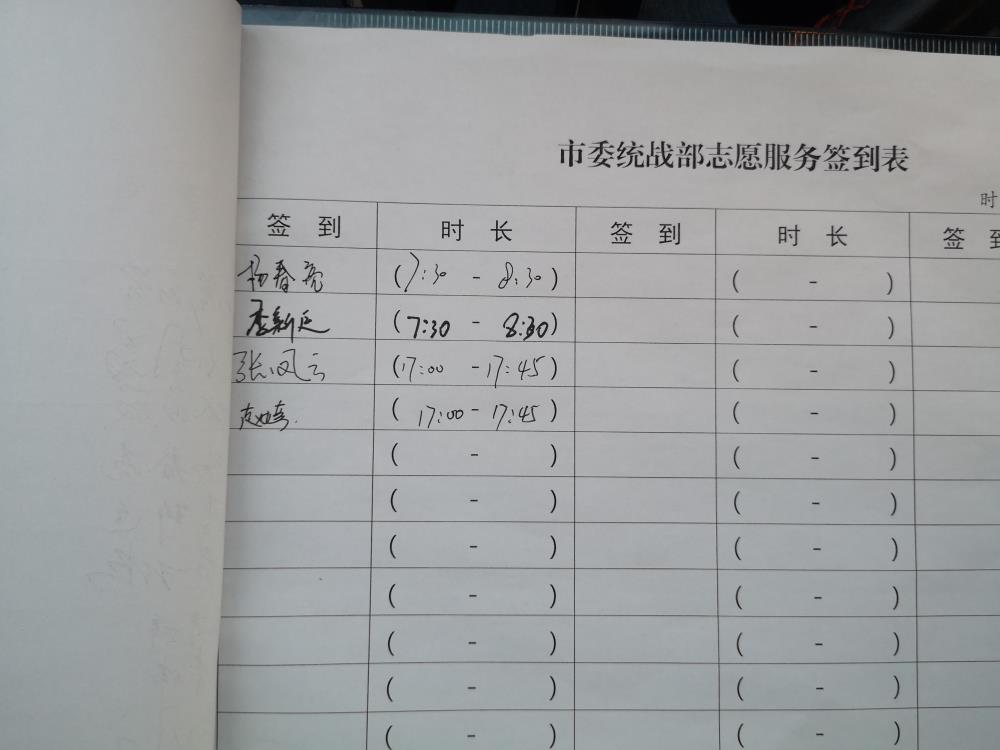 市委统战部志愿服务签到表
时
签 到 时 长 签 到 时 长 签 到
杨春亮 (7:30 - 8:30) ( - )
李新廷 (7:30 - 8:30) ( - )
张凤云 (17:00 - 17:45) ( - )
(17:00 - 17:45) ( - )
( - ) ( - )
( - ) ( - )
( - ) ( - )
( - ) ( - )
( - ) ( - )
( - ) ( - )
( - ) ( - )